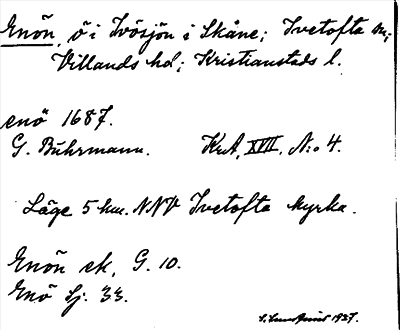 Enön, ö i Ivösjön i Skåne; Ivetofta sn;
Villands hd; Kristianstads l.
enö 1687.
G. Buhrmann. KrA, XVII, N:o 4.
Läge 5 km. NNV Ivetofta kyrka.
Enön ek. G. 10.
Enö Sj. 33.
1927.